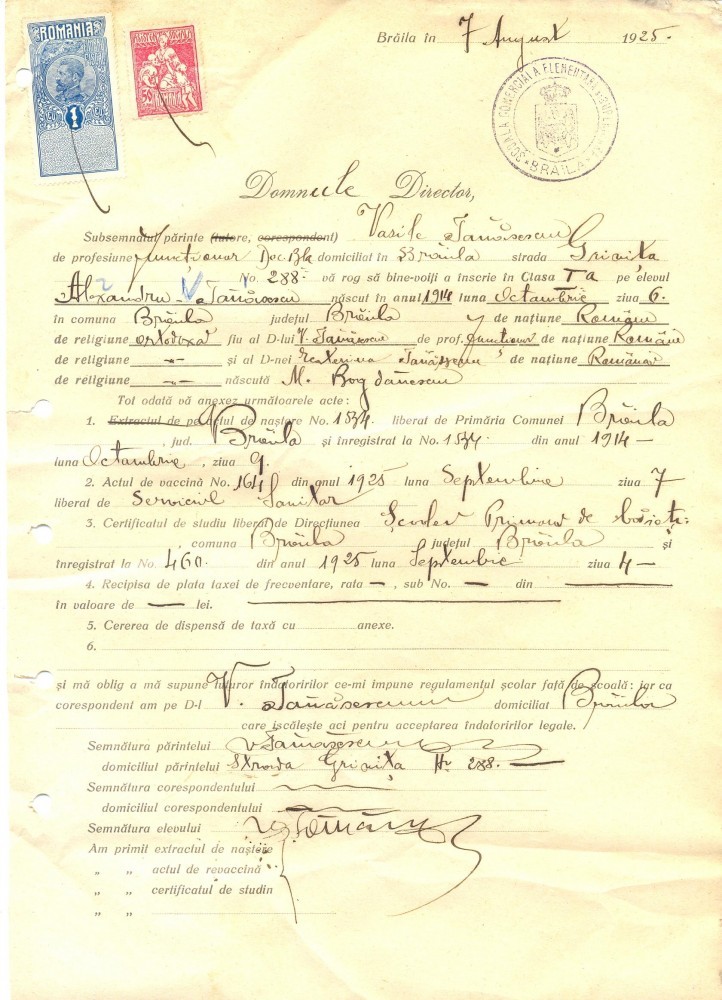 ROMANIA
1
50
ROMANIA
Brăila în 7 August 1925.
ȘCOALA COMERCIALĂ ELEMENTARĂ
BRĂILA
Domnule Director,
Subsemnatul părinte (tutore, corespondent) Vasile Tanăsescu
de profesiune funcționar Doc. Bla domiciliat în Brăila strada Grivița
No. 288 vă rog să bine-voiți a înscrie în Clasa I a pe elevul
Alexandru V. Tanăsescu născut în anul 1914 luna Octombrie ziua 6.
în comuna Brăila județul Brăila de națiune Română
de religiune ortodoxă fiu al D-lui V. Tanăsescu de prof. funcționar de națiune Română
de religiune -„- și al D-nei Ecaterina Tanăsescu de națiune Română
de religiune -„- născută M. Bogdănescu
Tot odată vă anexez următoarele acte:
1. Extractul de pe actul de naștere No. 1534. liberat de Primăria Comunei Brăila
, jud. Brăila și înregistrat la No. 1534 din anul 1914 —
luna Octombrie, ziua 9.
2. Actul de vaccină No. 164 din anul 1925 luna Septembrie ziua 7
liberat de Serviciul Sanitar
3. Certificatul de studiu liberat de Direcțiunea Școalei Primară de băieți
, comuna Brăila județul Brăila și
înregistrat la No. 460. din anul 1925 luna Septembrie ziua 4 —
4. Recipisa de plata taxei de frecventare, rata —, sub No. — din —
în valoare de — lei.
5. Cererea de dispensă de taxă cu anexe.
6.
și mă oblig a mă supune tuturor îndatoririlor ce-mi impune regulamentul școlar față de școală: iar ca
corespondent am pe D-l V. Tanăsescu domiciliat Brăila
care iscălește aci pentru acceptarea îndatoririlor legale.
Semnătura părintelui V. Tanăsescu
domiciliul părintelui Strada Grivița Nr 288. —
Semnătura corespondentului
domiciliul corespondentului
Semnătura elevului
Am primit extractul de naștere
„ „ actul de revaccină
„ „ certificatul de studin
„ „